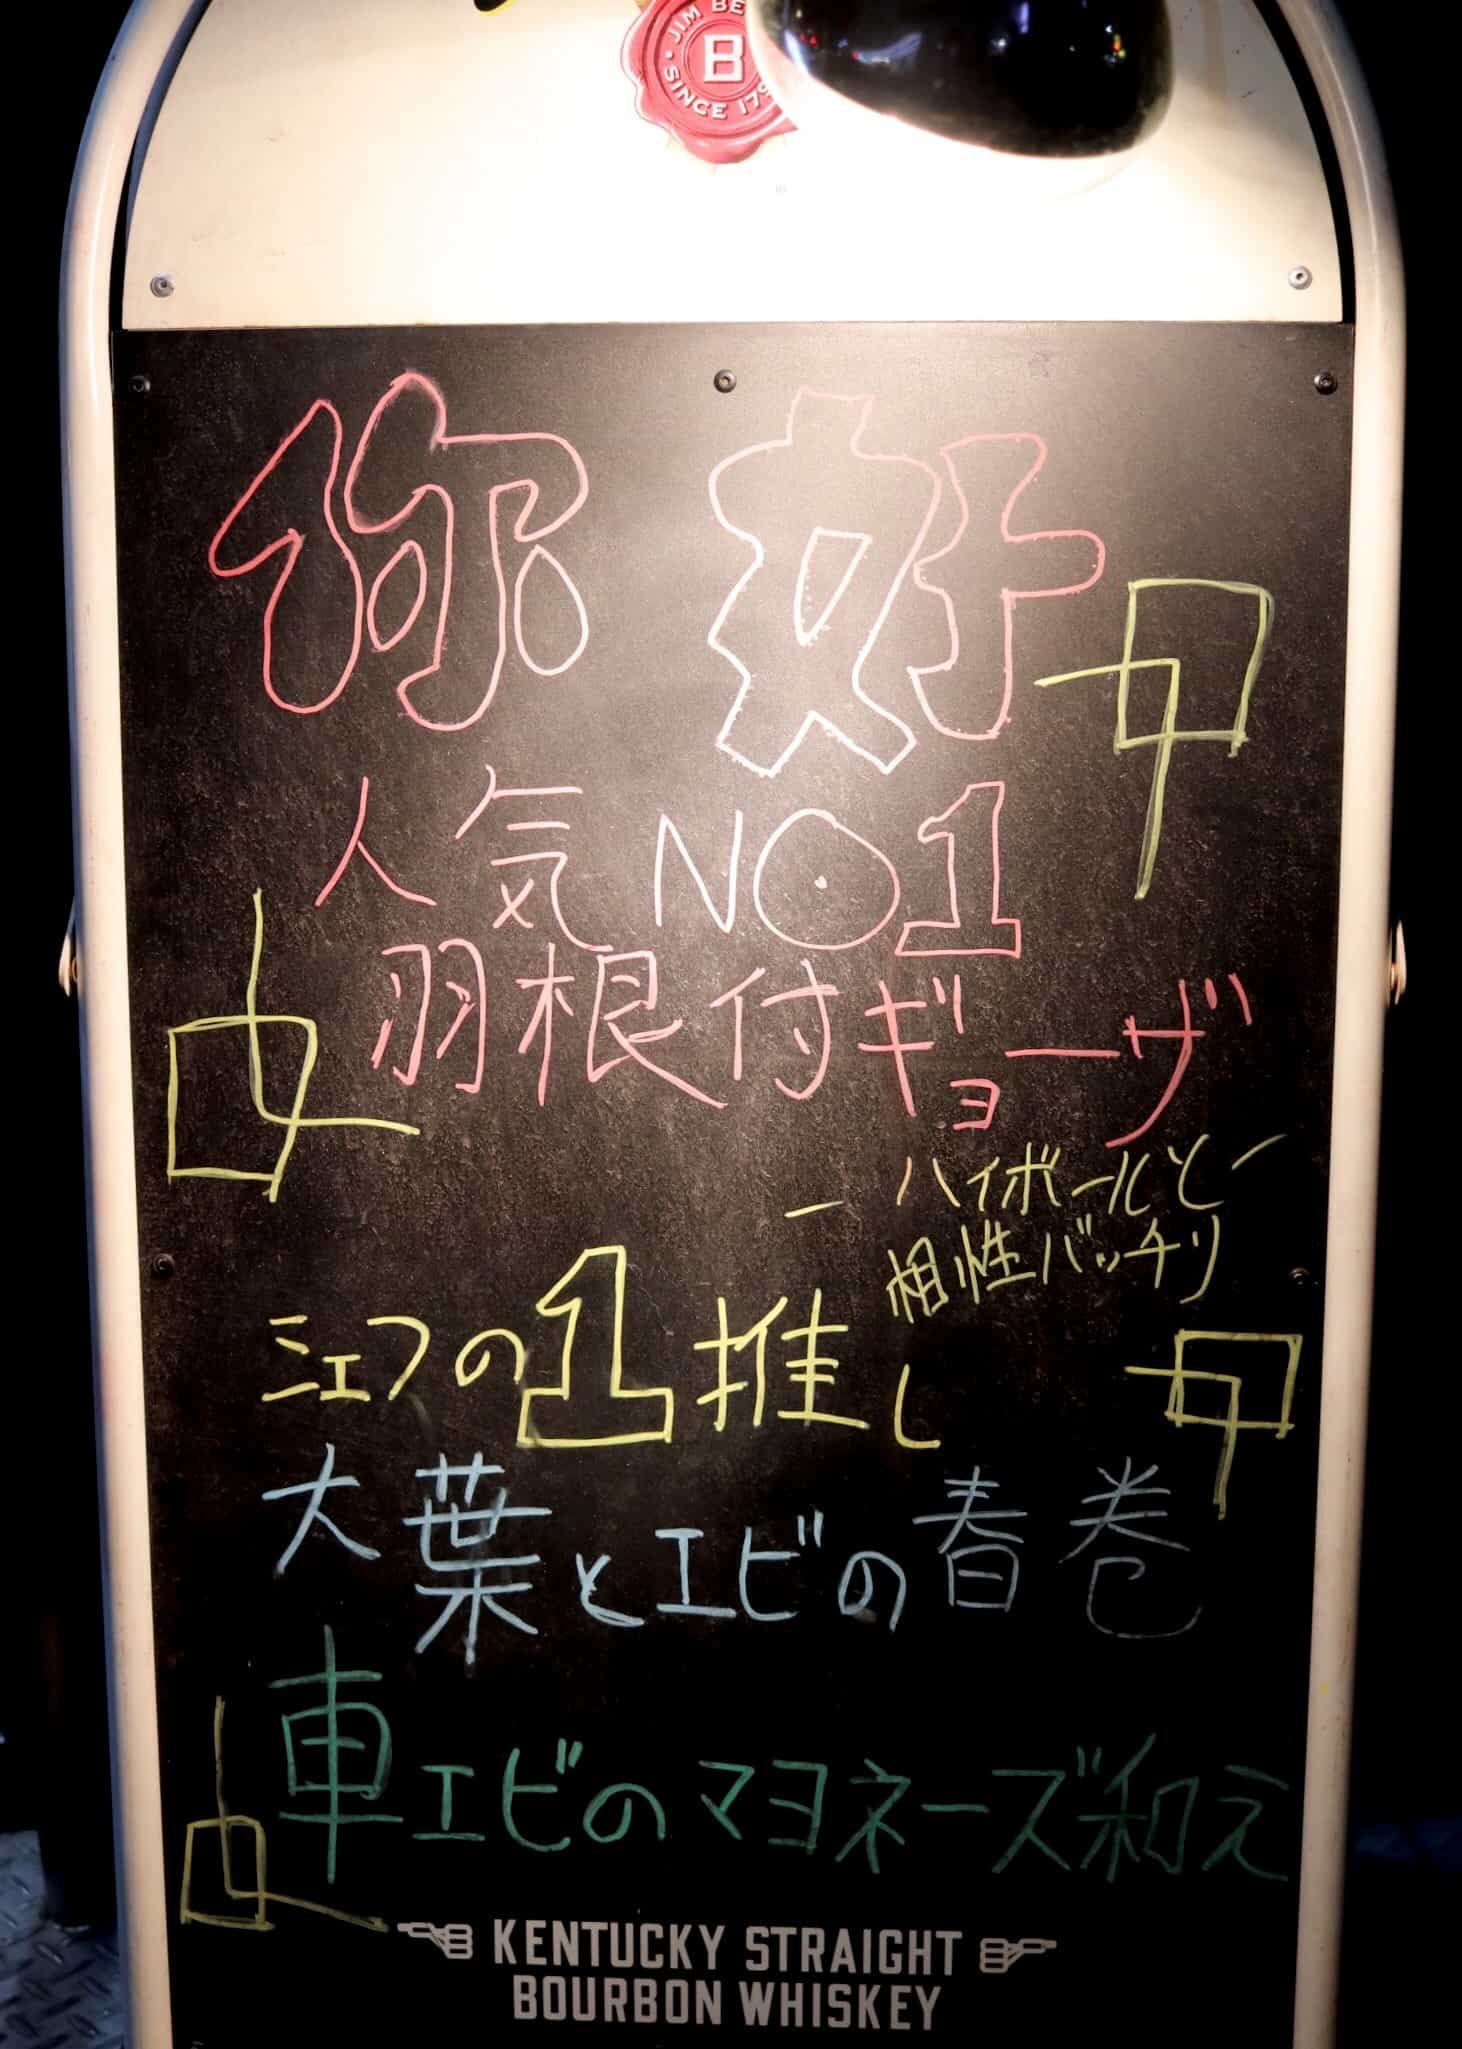 JIM BE
B
SINCE 179
你好
人気NO1
羽根付ギョーザ
ーハイボールとー
相性バッチリ
シェフの1推し
大葉とエビの春巻
車エビのマヨネーズ和え
KENTUCKY STRAIGHT
BOURBON WHISKEY